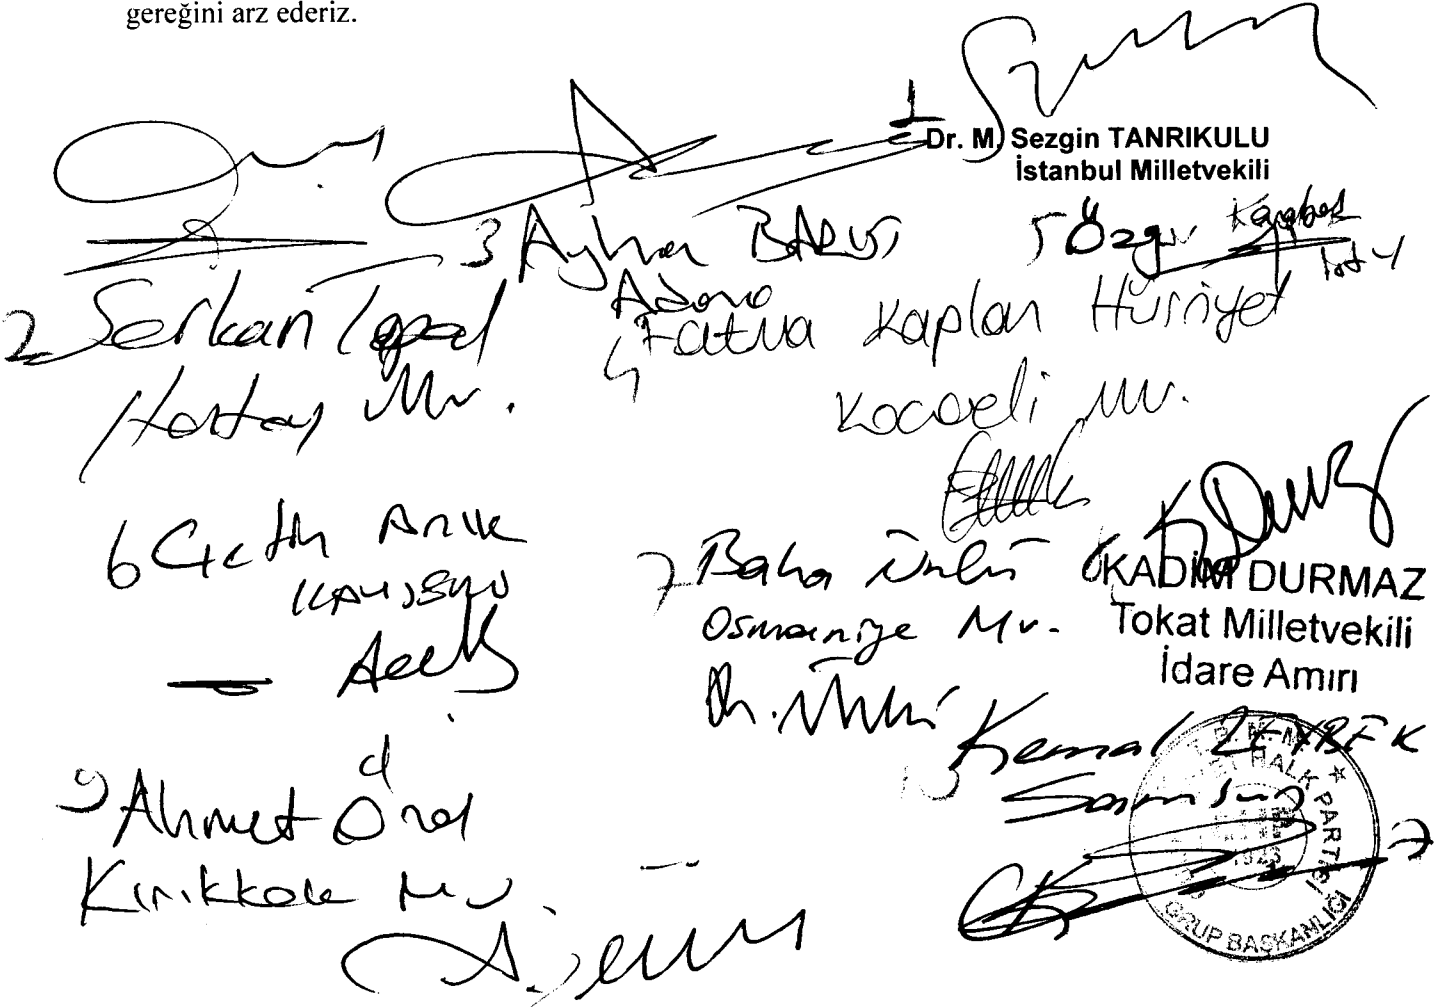 gereğini arz ederiz.
1
Dr. M. Sezgin TANRIKULU
İstanbul Milletvekili
3 Ayhan BARUT
Adana
5 Özgür Karabat
İst
2 Serkan Topal
Hatay Mv.
4 Fatma Kaplan Hürriyet
Kocaeli Mv.
6 Çetin Arık
KAYSERİ
7 Baha Ünlü
Osmaniye Mv.
KADİM DURMAZ
Tokat Milletvekili
İdare Amiri
9 Ahmet Önal
Kırıkkale Mv.
10 Kemal ZEYBEK
Samsun
T.B.M.M.
HALK PARTİSİ
GRUP BAŞKANLIĞI
1923